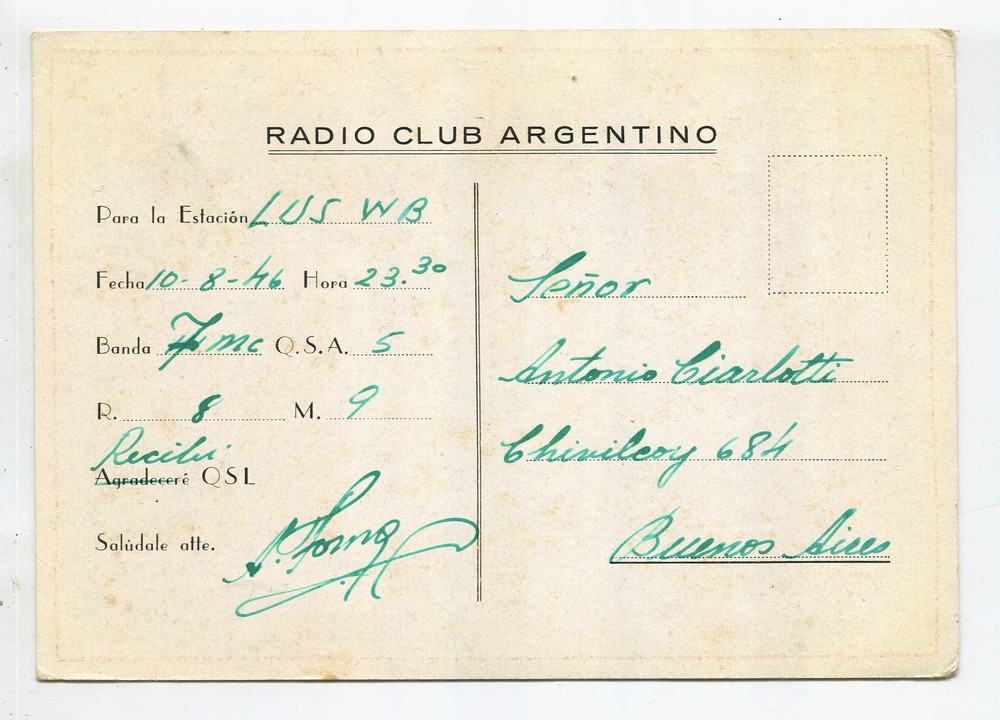 RADIO CLUB ARGENTINO
Para la Estación LU5 WB
Fecha 10-8-46 Hora 23.30
Banda 7 mc Q.S.A. 5
R. 8 M. 9
Recibi
Agradeceré QSL
Salúdale atte.
Señor
Antonio Ciarlotti
Chivilcoy 684
Buenos Aires